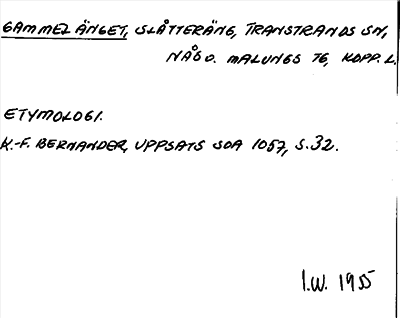 GAMMEL ÄNGET, SLÅTTERÄNG, TRANSTRANDS SN,
NÅS O. MALUNGS TG, KOPP. L.
ETYMOLOGI.
K.-F. BERNANDER, UPPSATS SOA 1057, S.32.
I.W. 1955